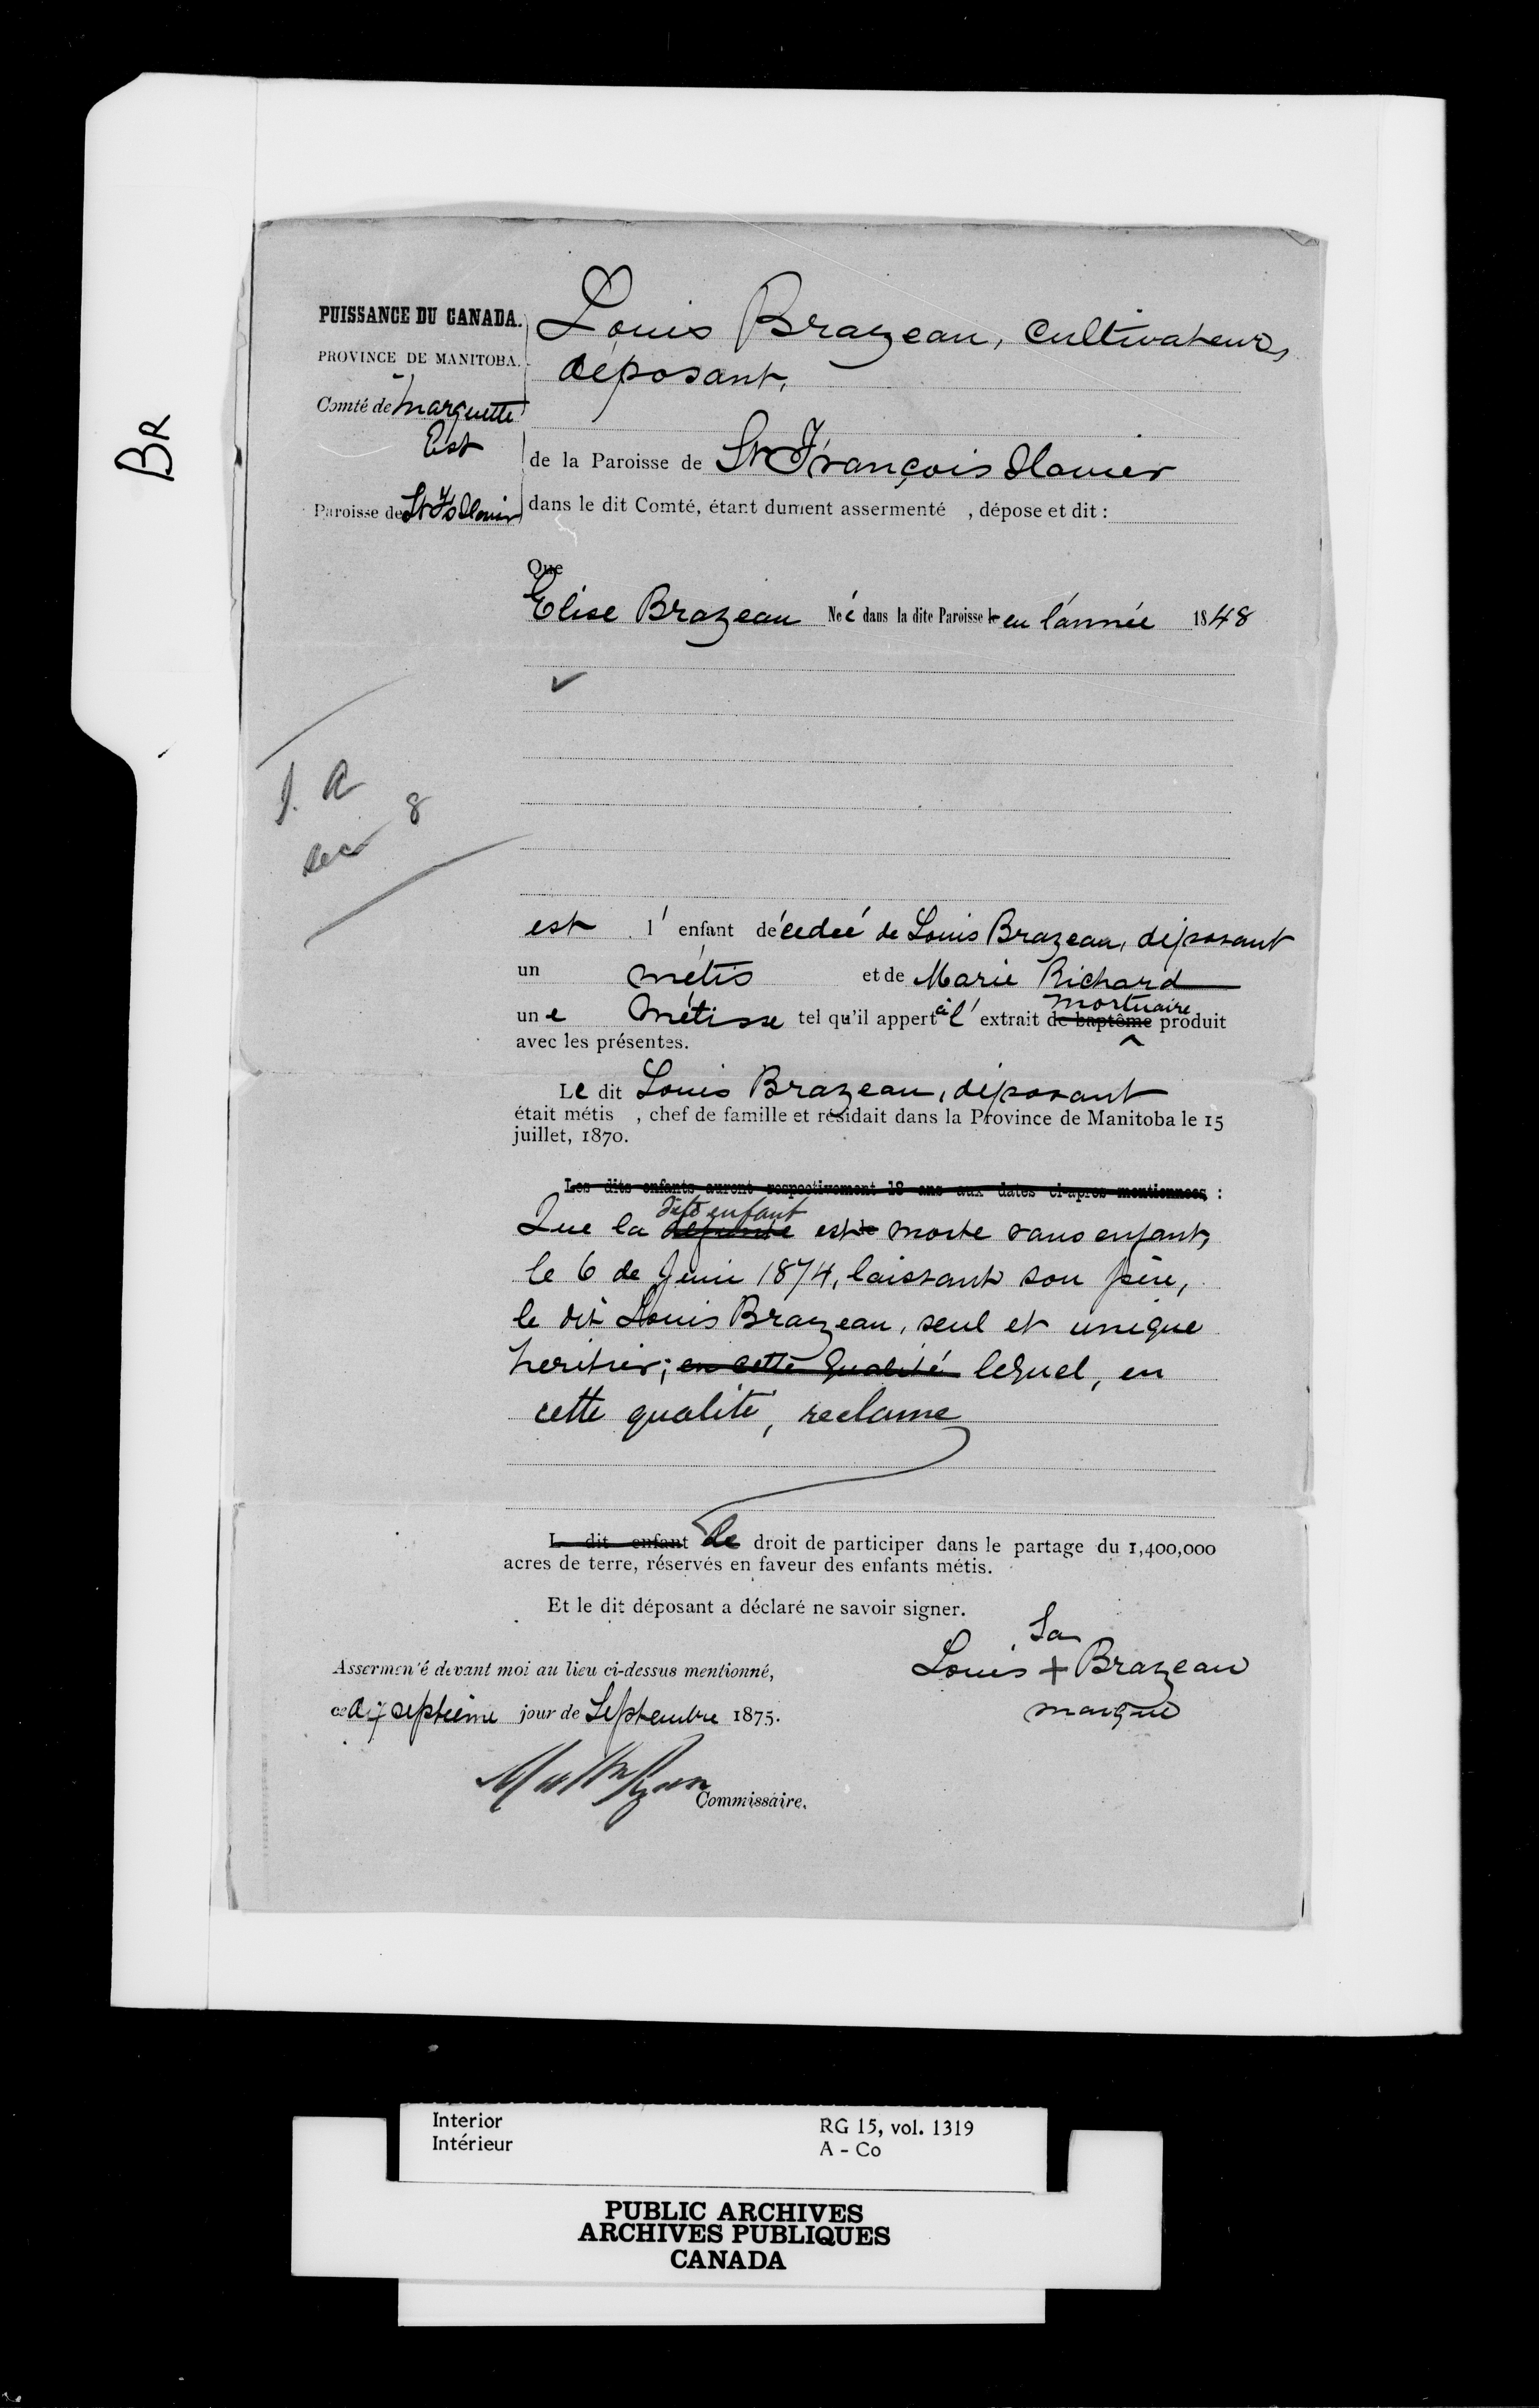 BR
PUISSANCE DU CANADA.
PROVINCE DE MANITOBA.
Comté de Marquette
Est
Paroisse de St Frs Xavier
Louis Brazeau, Cultivateur,
déposant,
de la Paroisse de St François Xavier
dans le dit Comté, étant dument assermenté , dépose et dit :
Que
Elise Brazeau Neé dans la dite Paroisse le en l'année 1848
J. A
8
est l' enfant décedeé de Louis Brazeau, déposant
un métis et de Marie Richard
mortuaire
une Métisse tel qu'il appert à l' extrait de baptême produit
avec les présentes.
Le dit Louis Brazeau, déposant
était métis , chef de famille et résidait dans la Province de Manitoba le 15
juillet, 1870.
Les dits enfants auront respectivement 18 ans aux dates ci-apres mentionnees :
dite enfant
Que la defunte est morte sans enfant,
le 6 de Juin 1874, laissant son père,
le dit Louis Brazeau, seul et unique
heritier; en cette qualité lequel, en
cette qualité, reclame
L dit enfant le droit de participer dans le partage du 1,400,000
acres de terre, réservés en faveur des enfants métis.
Et le dit déposant a déclaré ne savoir signer.
Sa
Louis + Brazeau
marque
Assermenté devant moi au lieu ci-dessus mentionné,
ce dix septième jour de Septembre 1875.
Matt Ryan
Commissaire.
Interior
Intérieur
RG 15, vol. 1319
A - Co
PUBLIC ARCHIVES
ARCHIVES PUBLIQUES
CANADA